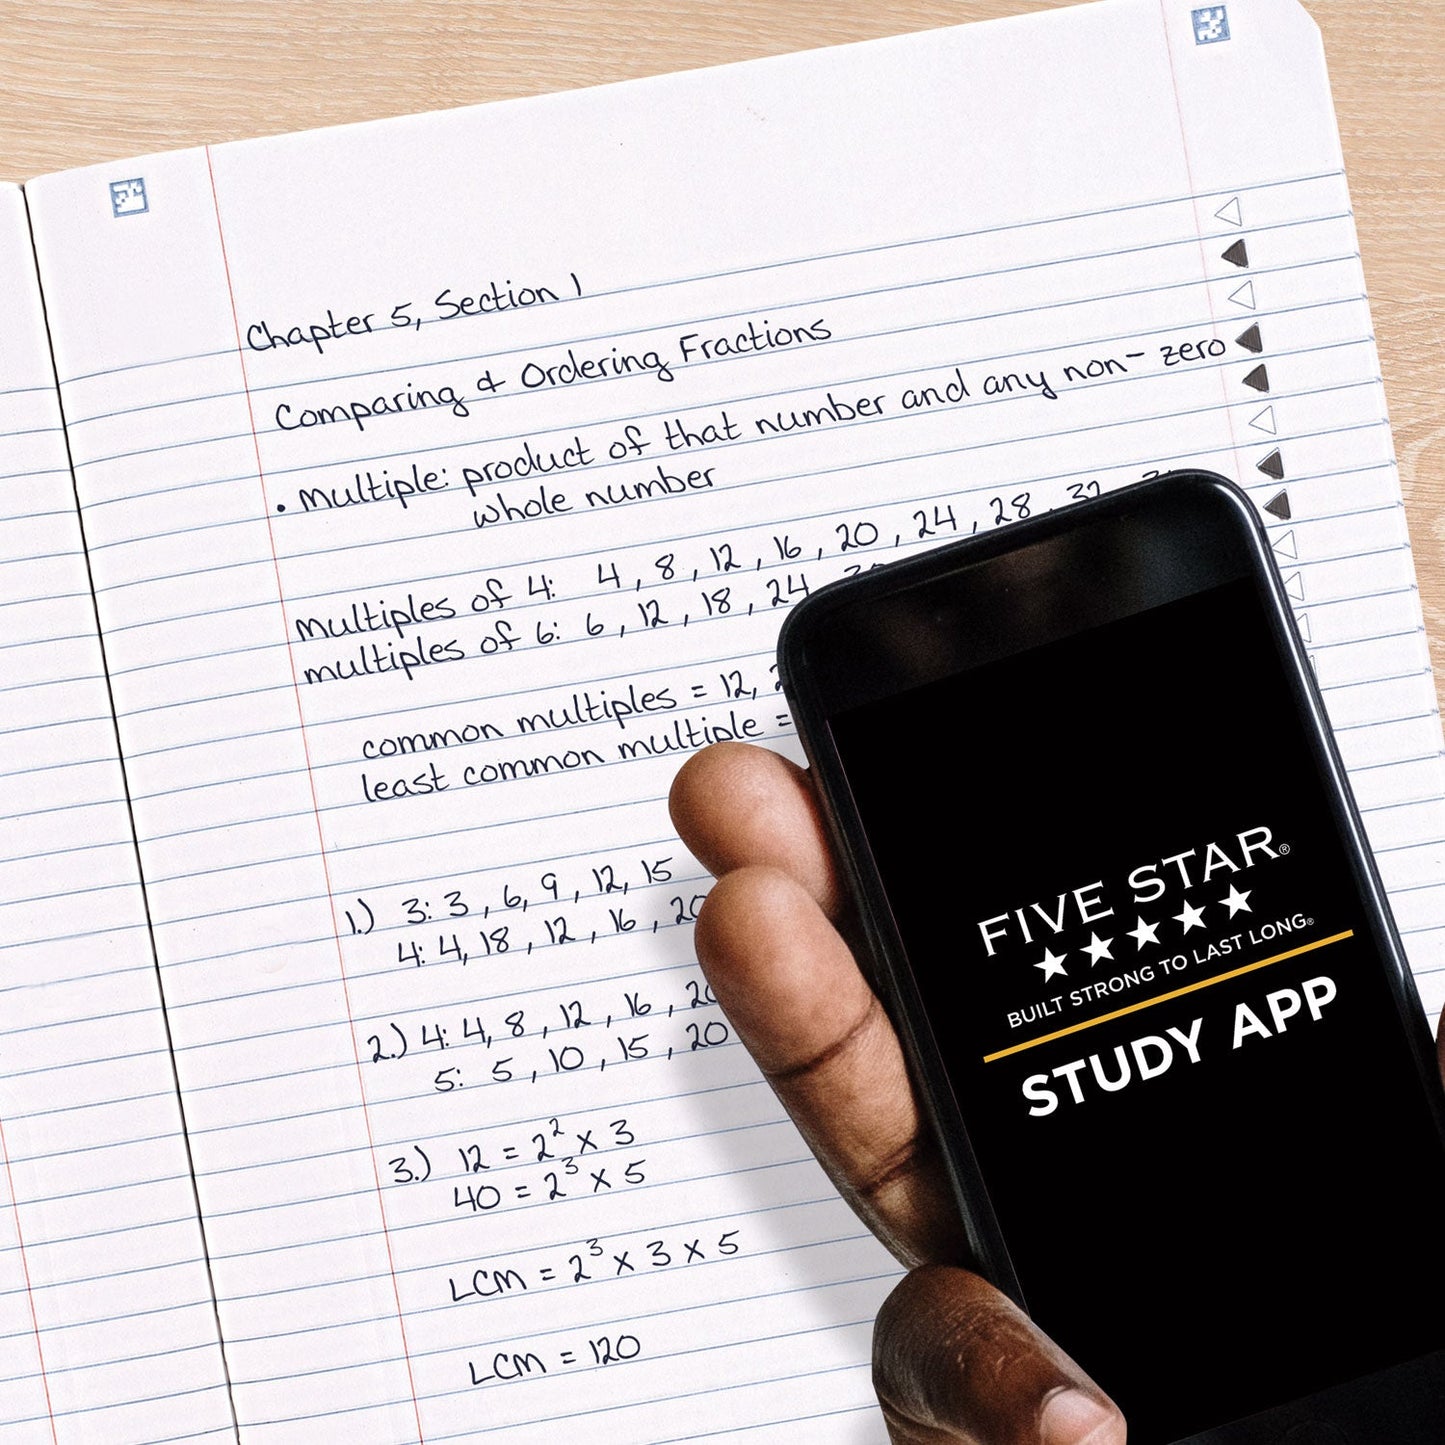 Chapter 5, Section 1
Comparing & Ordering Fractions
• multiple: product of that number and any non-zero
whole number
multiples of 4: 4, 8, 12, 16, 20, 24, 28, 32
multiples of 6: 6, 12, 18, 24
common multiples = 12,
least common multiple =
1.) 3: 3, 6, 9, 12, 15
4: 4, 18, 12, 16, 20
2.) 4: 4, 8, 12, 16, 20
5: 5, 10, 15, 20
3.) 12 = 2² x 3
40 = 2³ x 5
LCM = 2³ x 3 x 5
LCM = 120
FIVE STAR®
★★★★★
BUILT STRONG TO LAST LONG®
STUDY APP